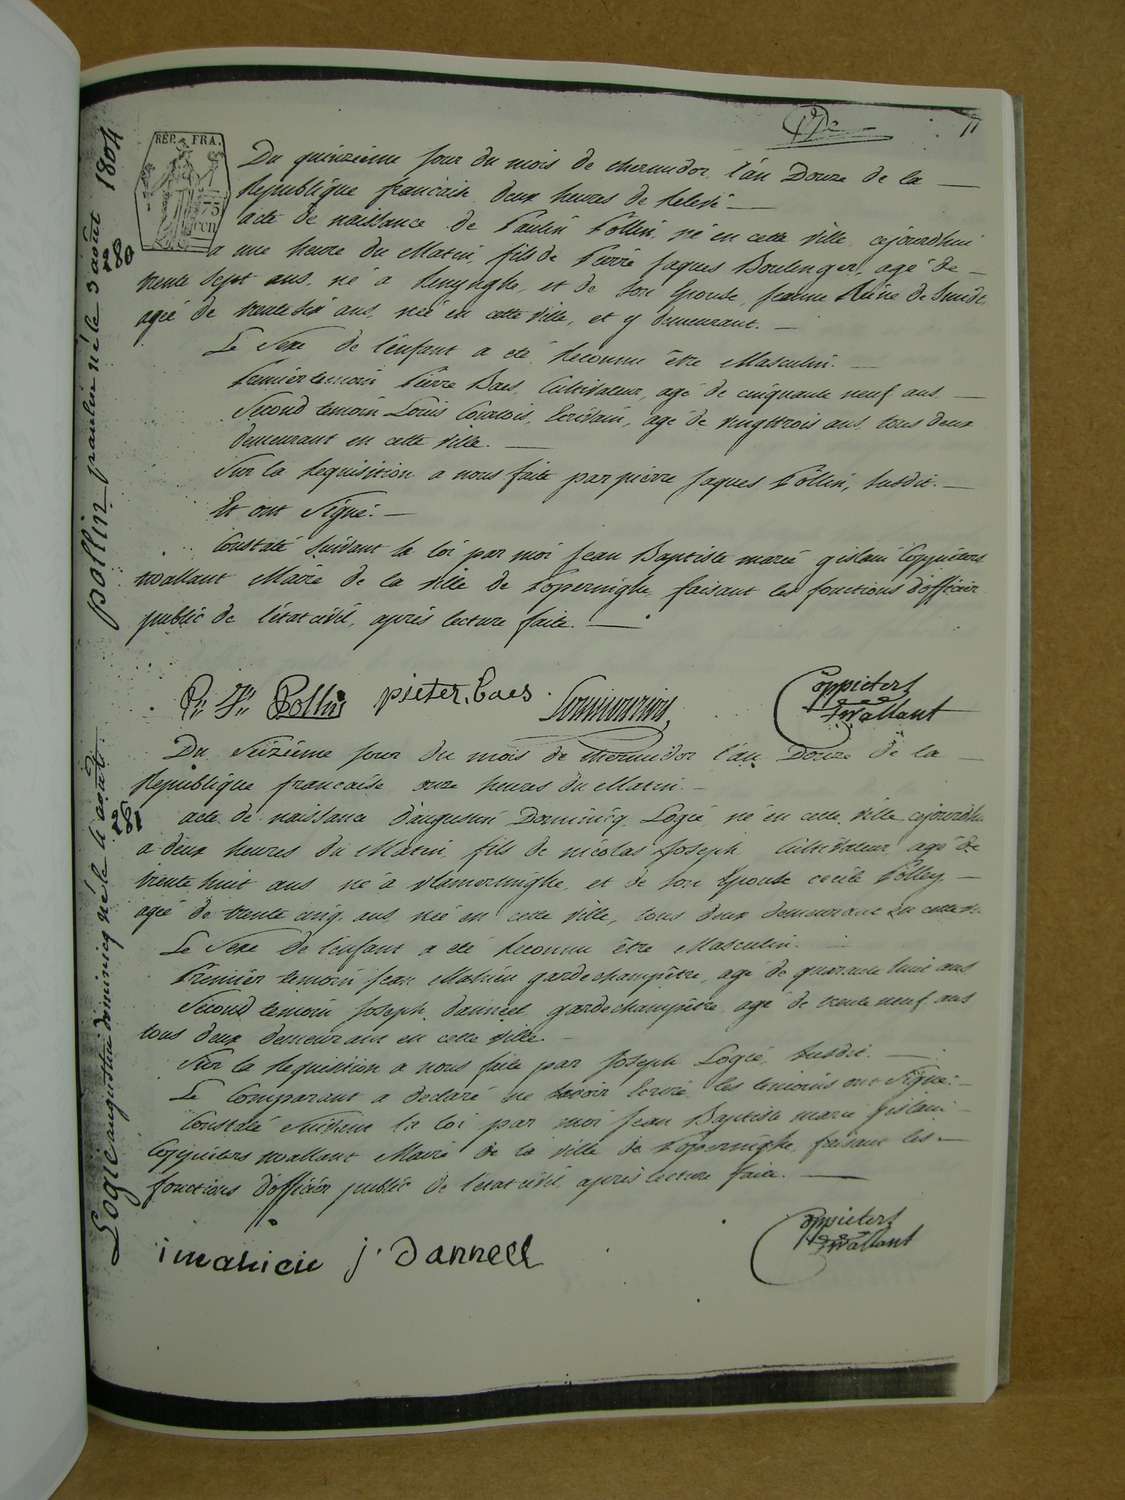 11
REP. FRA.
75
cen
pollin paulin né le 3 août 1804
280
Du quinzième jour du mois de thermidor l'an Douze de la
Republique francaise deux heures de Relevé
acte de naissance de Paulin Pollin né en cette ville cejourdhui
a une heure du Matin, fils de Pierre Jaques Boulenger, agé de
trente sept ans, né à Renynghe, et de Son Epouse, Jeanne Reine de Smidt
agée de trente six ans, née en cette ville, et y demeurant.
Le Sexe de l'enfant a eté Reconnu être Masculin.
Premier temoin Pierre Baes Cultivateur, agé de cinquante neuf ans
Second temoin Louis Courtois, Ecrivain, agé de vingttrois ans, tous deux
demeurant en cette ville.
Sur la Requisition a nous faite par pierre Jaques Pollin, Susdit.
Et ont Signé.
Constaté Suivant la loi par moi Jean Baptiste marie gislain Coppieters
wallant Maire de la ville de Poperinghe, faisant les fonctions d'officier
public de l'état civil, après lecture faite.
Pr. Js. Pollin pieter baes
Coppieters
twallant
Logie augustin dominicq né le 4 août
281
Du Seizième jour du mois de thermidor l'an Douze de la
Republique francaise onze heures du Matin.
acte de naissance d'augustin Dominicq Logie, né en cette ville cejourdhui
a deux heures du Matin, fils de nicolas Joseph Cultivateur agé de
trente huit ans né à vlamertinghe, et de Son Epouse cecile Polley
agée de trente cinq ans née en cette ville, tous deux demeurant en cette v.
Le Sexe de l'enfant a eté Reconnu être Masculin.
Premier temoin Jean Mahieu gardechampêtre, agé de quarante huit ans
Second temoin Joseph danneel gardechampêtre agé de trente neuf ans
tous deux demeurant en cette ville.
Sur la Requisition a nous faite par Joseph Logie Susdit.
Le Comparant a declaré ne Savoir Ecrire les temoins ont Signé.
Constaté Suivant la loi par moi Jean Baptiste marie gislain
Coppieters wallant Maire de la ville de Poperinghe, faisant les
fonctions d'officier public de l'état civil, après lecture faite.
i mahieu j. danneel
Coppieters
twallant